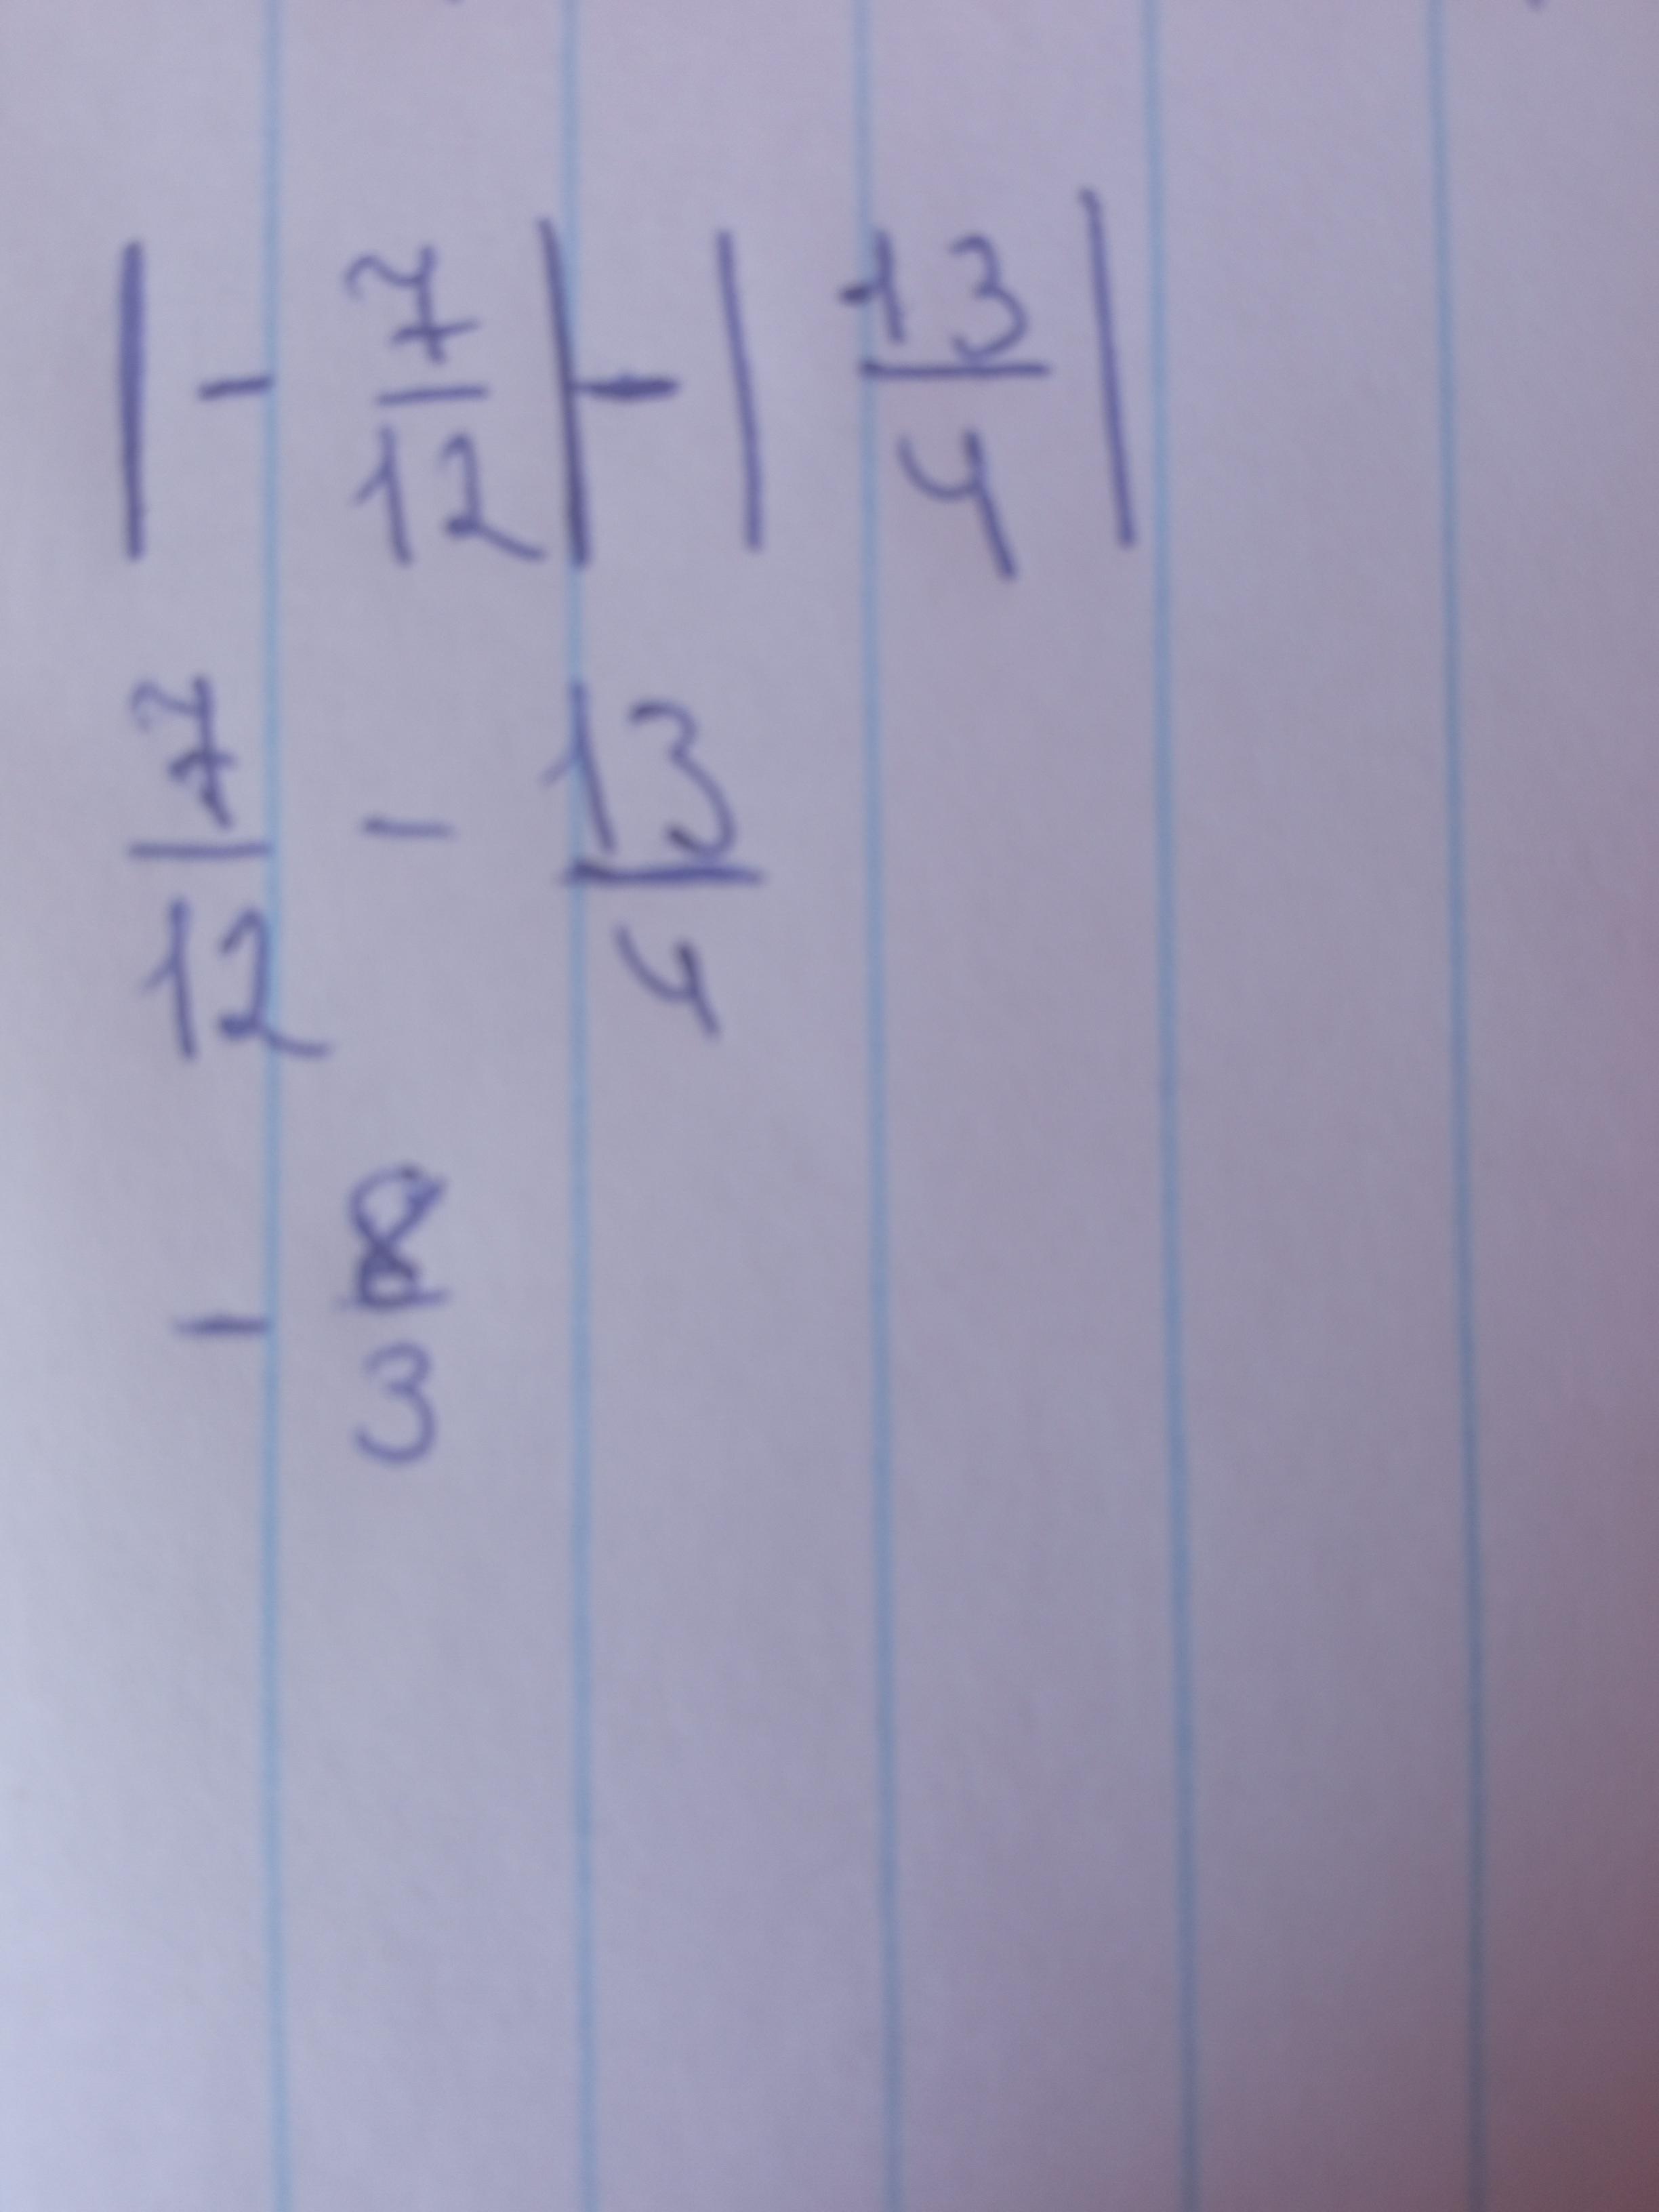 |-7/12|-|13/4|
7/12 - 13/4
- 8/3